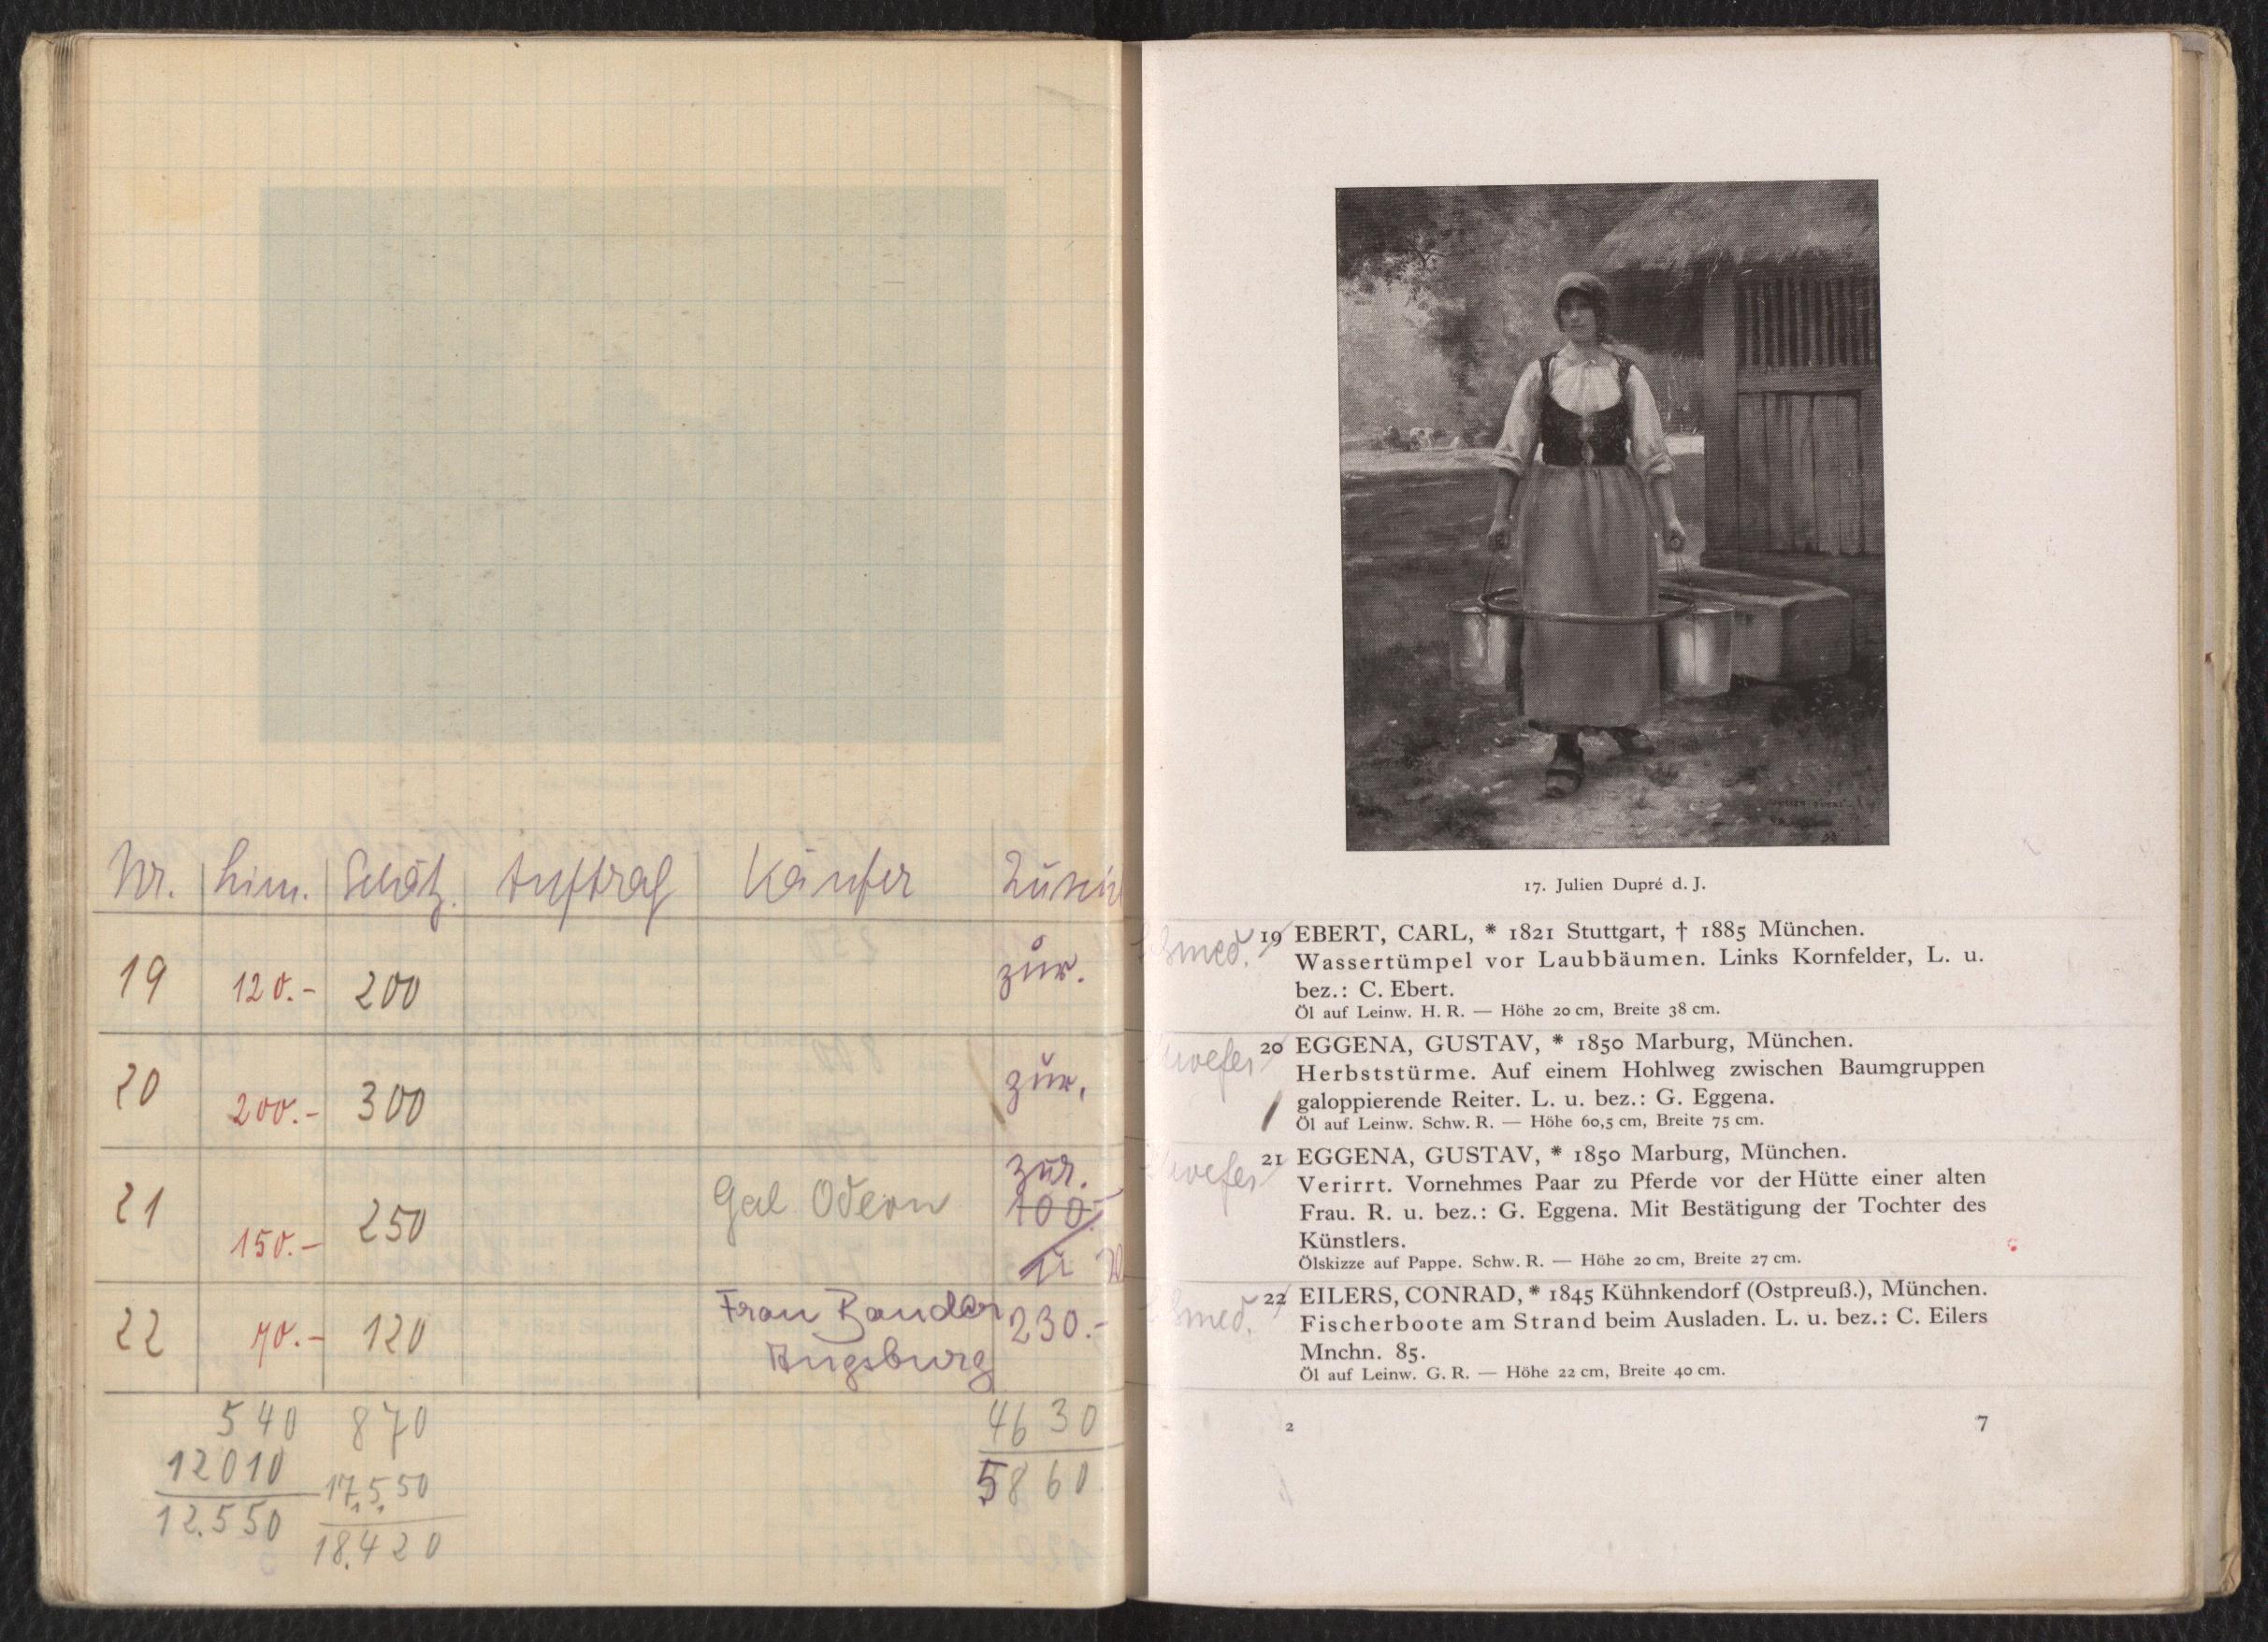 Nr. Lim. Schätz. Auftrag Käufer
19 120.- 200 zur.
20 200.- 300 zur.
21 150.- 250 Gal Odeon zur.
100.-
22 70.- 120 Frau Bander 230.-
Augsburg
540 870 4630
12010 17,550 5860
12.550 18.420
17. Julien Dupré d. J.
19 EBERT, CARL, * 1821 Stuttgart, † 1885 München.
Wassertümpel vor Laubbäumen. Links Kornfelder, L. u.
bez.: C. Ebert.
Öl auf Leinw. H. R. — Höhe 20 cm, Breite 38 cm.
20 EGGENA, GUSTAV, * 1850 Marburg, München.
Herbststürme. Auf einem Hohlweg zwischen Baumgruppen
galoppierende Reiter. L. u. bez.: G. Eggena.
Öl auf Leinw. Schw. R. — Höhe 60,5 cm, Breite 75 cm.
21 EGGENA, GUSTAV, * 1850 Marburg, München.
Verirrt. Vornehmes Paar zu Pferde vor der Hütte einer alten
Frau. R. u. bez.: G. Eggena. Mit Bestätigung der Tochter des
Künstlers.
Ölskizze auf Pappe. Schw. R. — Höhe 20 cm, Breite 27 cm.
22 EILERS, CONRAD, * 1845 Kühnkendorf (Ostpreuß.), München.
Fischerboote am Strand beim Ausladen. L. u. bez.: C. Eilers
Mnchn. 85.
Öl auf Leinw. G. R. — Höhe 22 cm, Breite 40 cm.
2 7